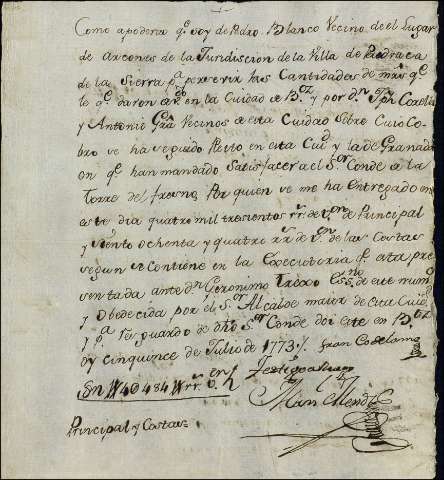 Como apoderº qᵉ soy de Pedro Blanco Vecino de el Lugar
de Arcones de la Jurisdiscion de la Villa de Pedraza
de la Sierra pª persevir las Cantidades de mrs qᵉ
le qᵈaron en la Ciudad de Bᶻ y por dⁿ Jph
y Antonio Grª Vecinos de esta Ciudad Sobre Cuio Co
bro se ha seguido Pleito en esta Ciuᵈ y la de Granada
en qᵉ han mandado Satisfacer a el Sᵒʳ Conde de la
Torre del fresno, Por quien se me ha Entregado en
este dia quatro mil tresientos rrˢ de vⁿ de Principal
y Siento ochenta y quatro rrˢ de vⁿ de las Costas
segun se Contiene en la Executoria qᵉ esta pre
sentada ante dⁿ Geronimo Essⁿᵒ de este numº
y Obedecida por el Sᵒʳ Alcalde maior de esta Ciuᵈ
y pª resguardo de dho Sᵒʳ Conde doi este en Bᶻ
oy quinze de Julio de 1773
Son 4484 rrˢ vⁿ testigo
Juan Mendez
Principal y Costas